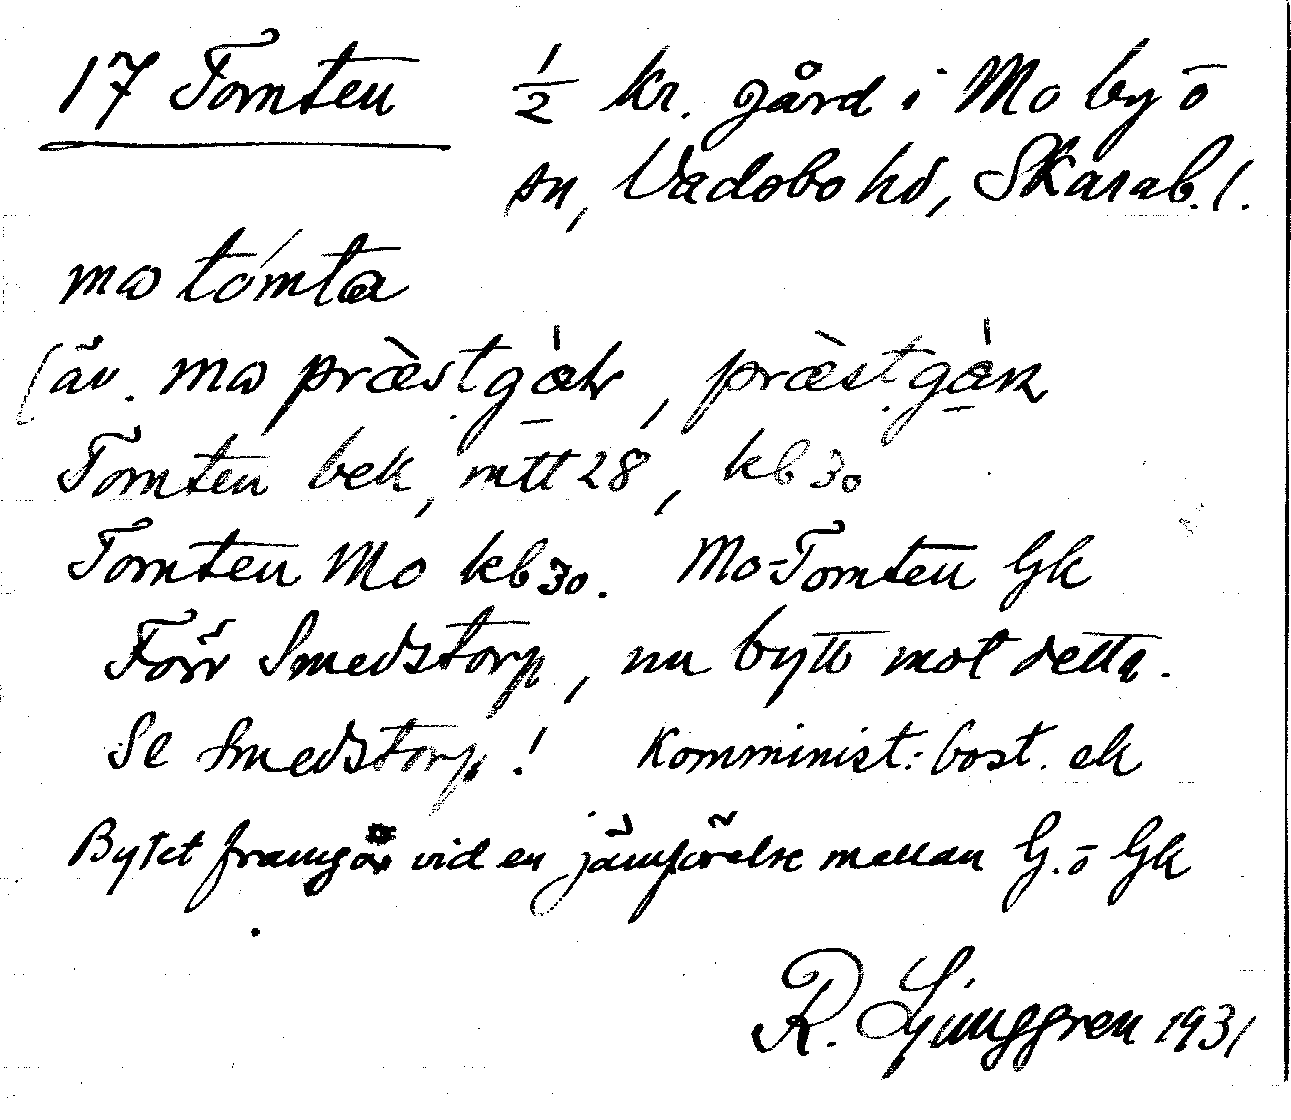 17 Tomten 1/2 kr. gård i Mo by ō
sn, Vadsbo hd, Skarab. l.
mω tómta
(äv. mω præ̀stgàḷ, præ̀stgàṇ
Tomten bek, mtt 28, kb 30
Tomten Mo kb 30. Mo-Tomten Gk
Förr Smedstorp, nu bytt mot detta.
Se Smedstorp! Komminist: bost. ek
Bytet framgår vid en jämförelse mellan G. ō Gk
R. Ljunggren 1931